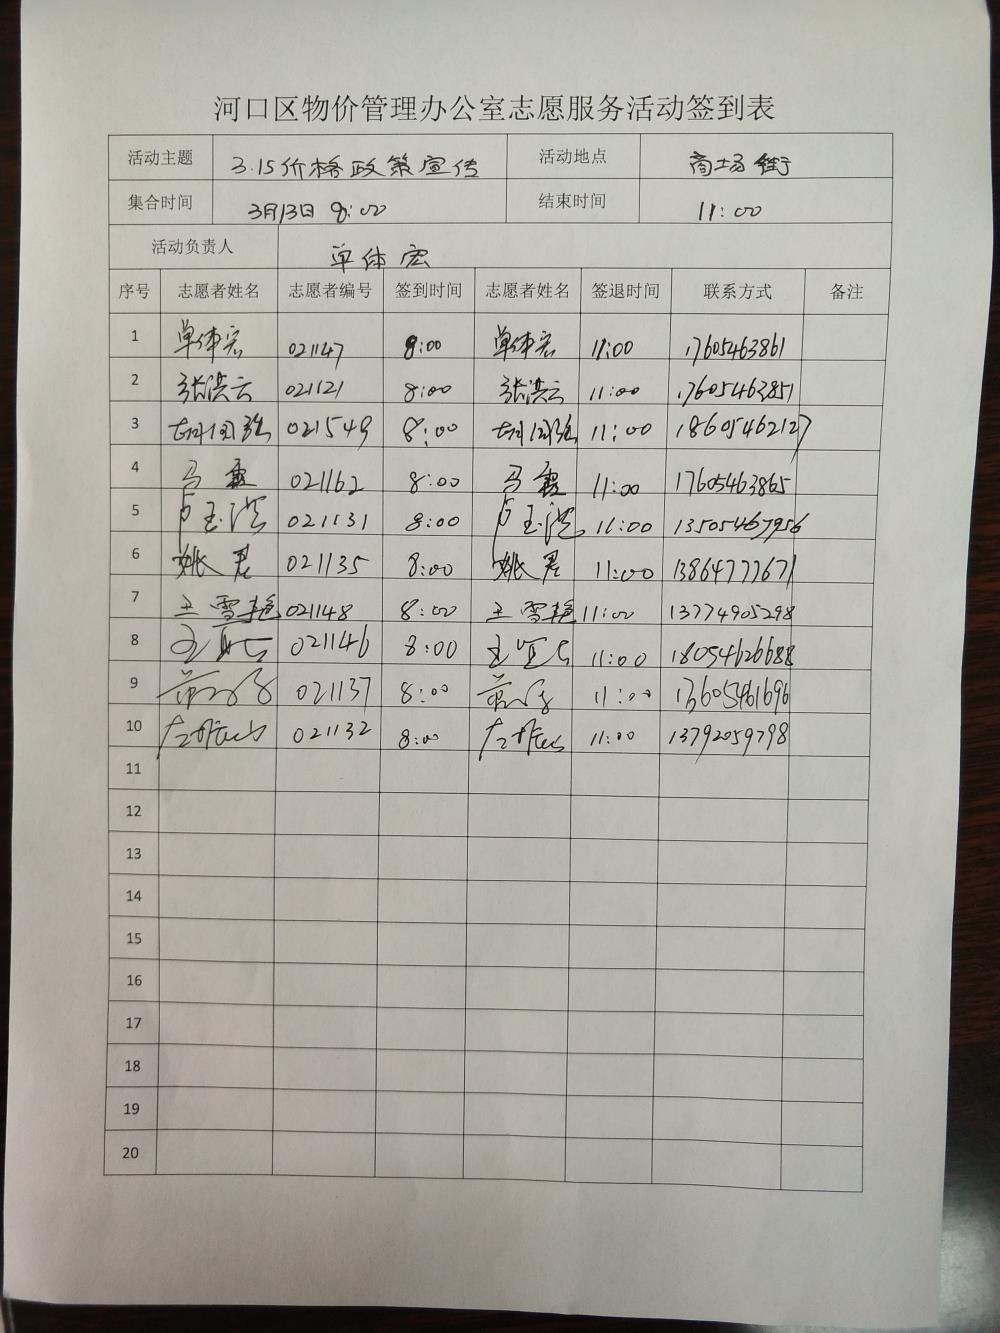 河口区物价管理办公室志愿服务活动签到表
活动主题 3.15价格政策宣传 活动地点 商场街
集合时间 3月13日 8:00 结束时间 11:00
活动负责人 单体宏
序号 志愿者姓名 志愿者编号 签到时间 志愿者姓名 签退时间 联系方式 备注
1 单体宏 021147 8:00 单体宏 11:00 17605463861
2 张洪云 021121 8:00 张洪云 11:00 17605463851
3 胡国强 021549 8:00 胡国强 11:00 18605462127
4 马霞 021162 8:00 马霞 11:00 17605463865
5 卢玉洪 021131 8:00 卢玉洪 11:00 13505467956
6 姚君 021135 8:00 姚君 11:00 13864777671
7 王雪艳 021148 8:00 王雪艳 11:00 13774905298
8 021146 8:00 11:00 18054626688
9 021137 8:00 11:00 13605461696
10 021132 8:00 11:00 13792059798
11
12
13
14
15
16
17
18
19
20